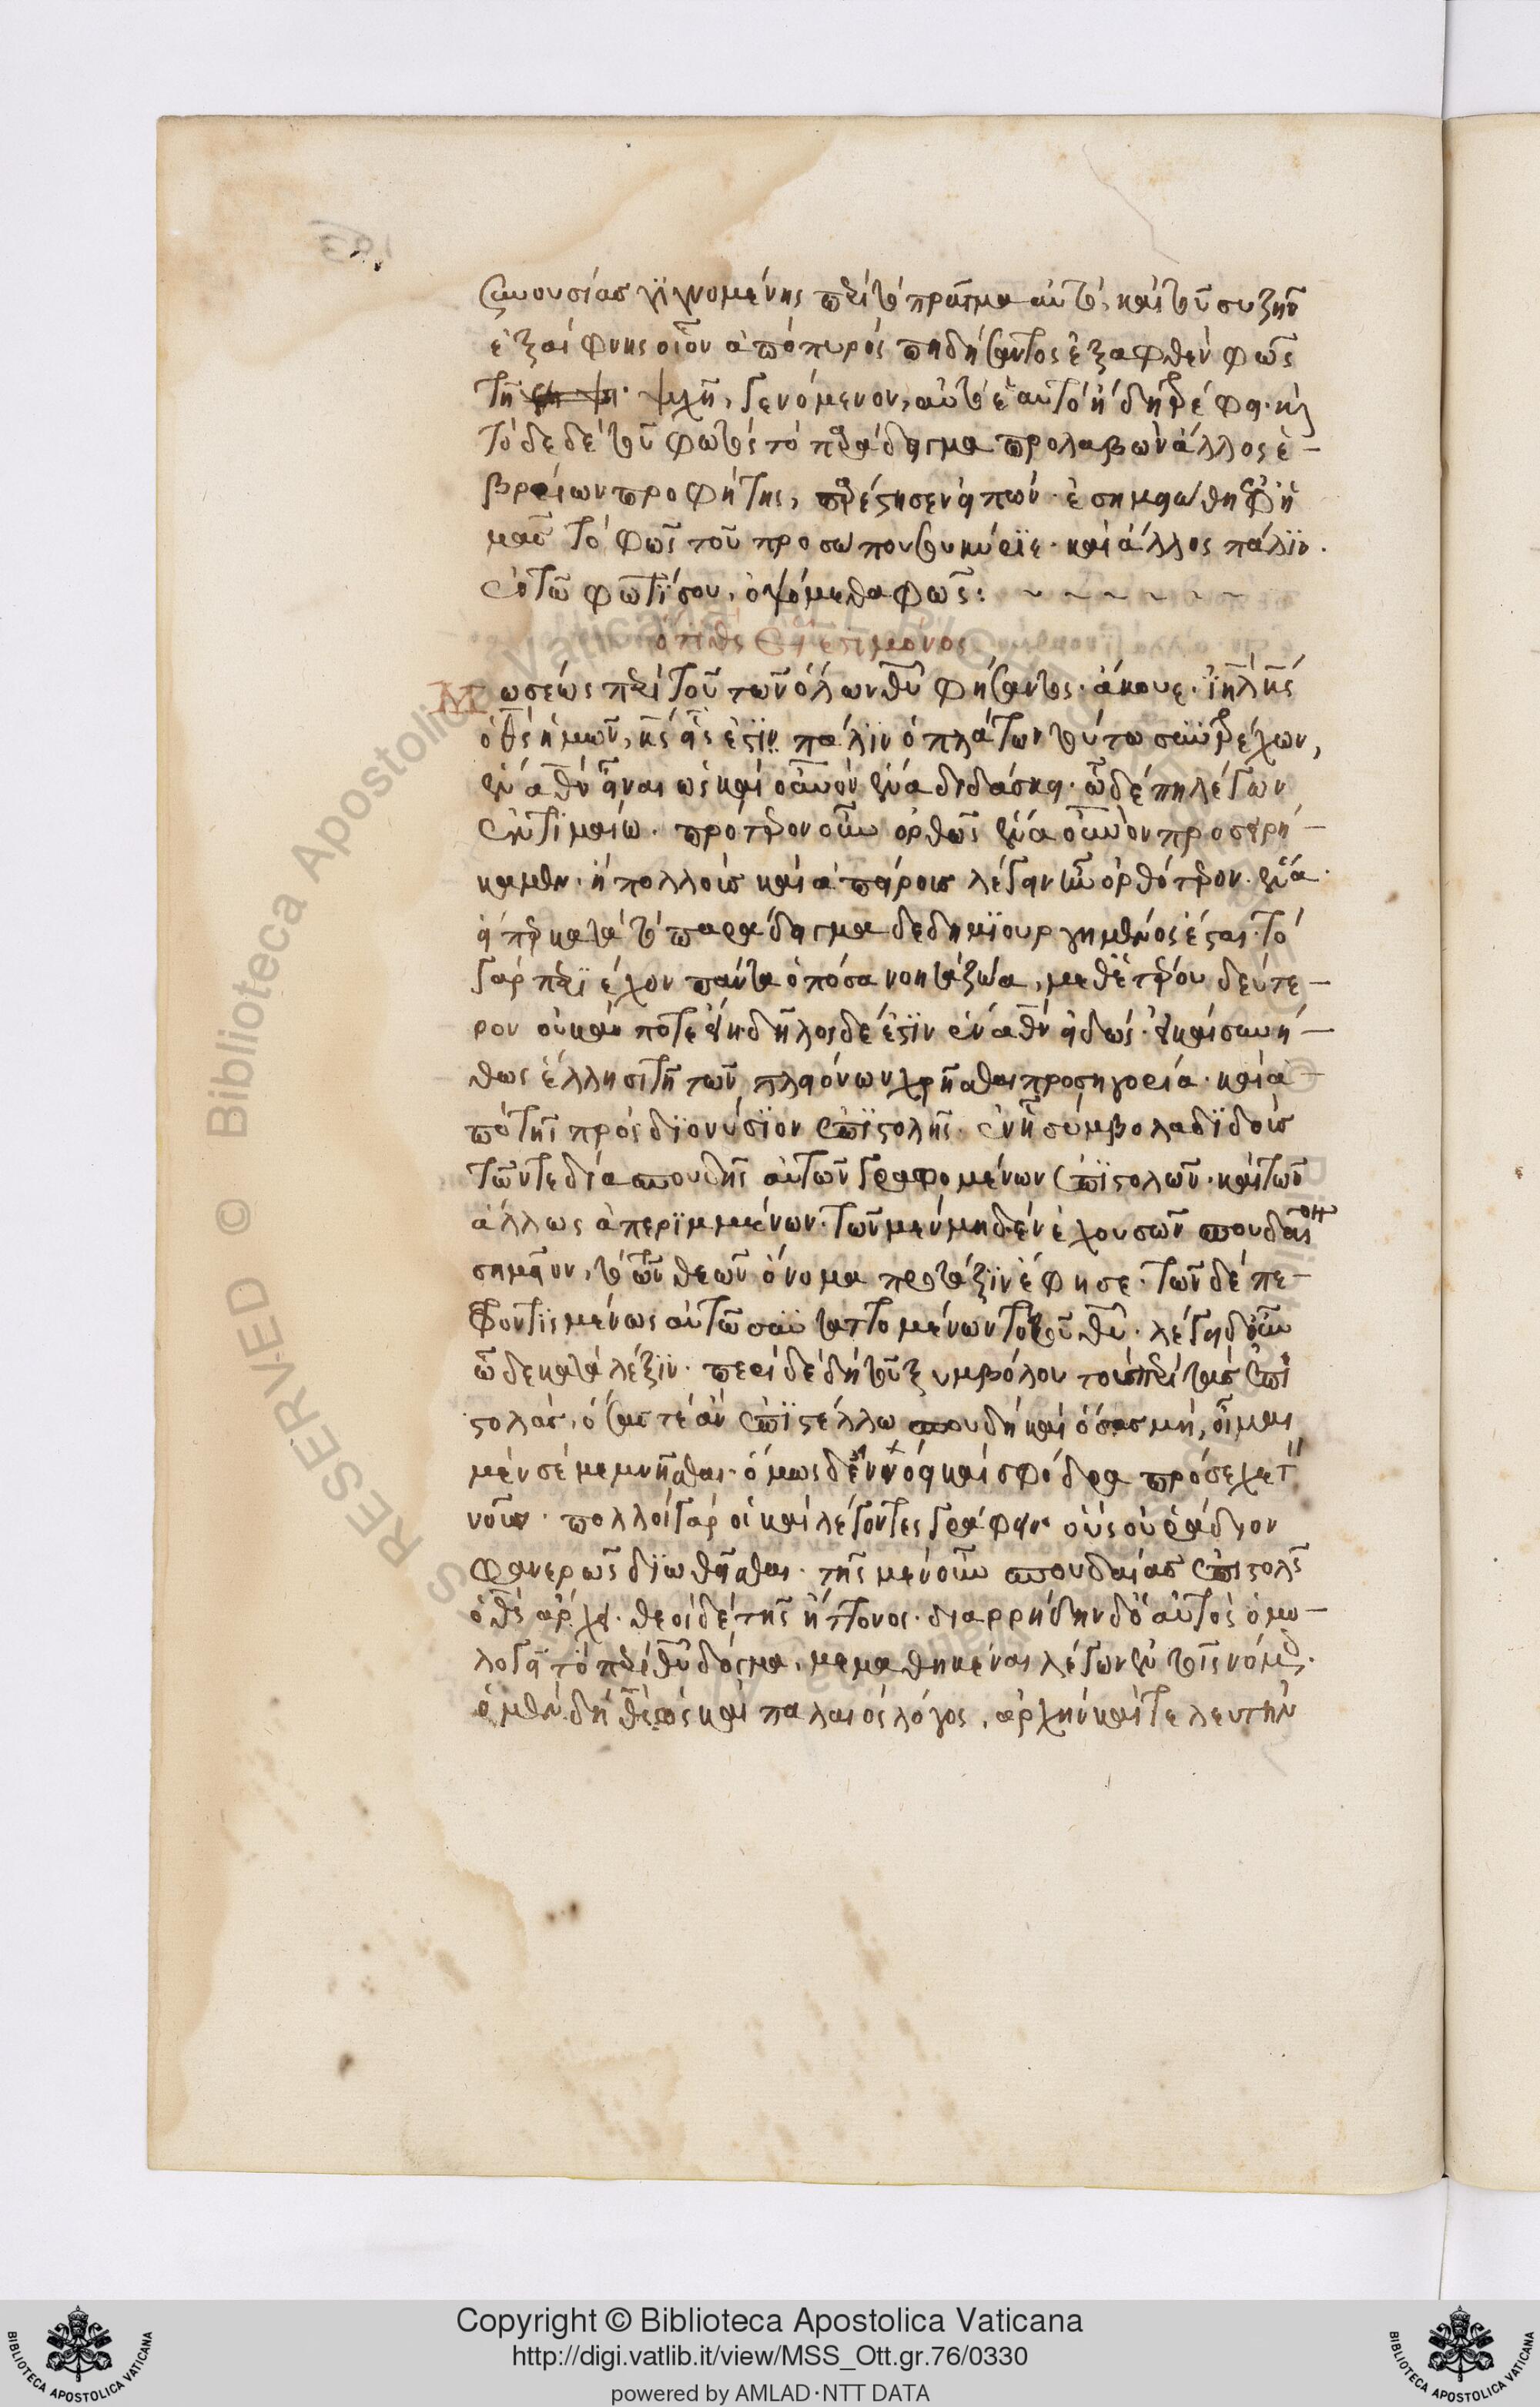 συνουσίας γϊγνομένης περὶ τὸ πρᾶγμα αὐτὸ, καὶ τοῦ συζῆν
ἐξαίφνης οἷον ἀπὸ πυρὸς πηδήσαντος ἐξαφθὲν φῶς
τῇ ψυχῇ, γενόμενον, αὐτὸ ἑαυτὸ ἤδη τρέφει. καὶ
τὸ δε δὲ τοῦ φωτὸς τὸ παράδειγμα προλαβὼν ἄλλος ἑ-
βραίων προφήτης, παρέστησεν εἰπών. ἐσημειώθη ἐφ' ἡ
μᾶς τὸ φῶς τοῦ προσώπου σου κύριε. καὶ ἄλλος πάλϊν.
ἐν τῷ φωτί σου, ὀψόμεθα φῶς: ~ ~ ~ ~ ~ ~
ὅτι θς εἷς ἐστι μόνος
Μωσέως περὶ τοῦ τῶν ὅλων θυ φήσαντος. ἄκουε. ϊηλ κς
ὁ θς ἡμῶν, κς εἷς ἐστϊν. πάλϊν ὁ πλάτων τούτω συντρέχων,
ἕνα θν εἶναι ὡς καὶ οὐνον ἕνα διδάσκει. ὧδέ πη λέγων
ἐν τϊμαίω. πρότερον οὖν ὀρθῶς ἕνα οὐνον προσειρή-
καμεν. ἢ πολλοὺς καὶ ἀπείρους λέγειν ἦν ὀρθότερον. ἕνα.
εἴπερ κατὰ τὸ παράδειγμα δεδημϊουργημένος ἔσται. τὸ
γὰρ περϊέχον πάντα ὁπόσα νοητὰ ζῶα, μεθ' ἑτέρου δεύτε-
ρον οὐκ ἄν ποτε εἴη. δῆλος δέ ἐστϊν ἕνα θν εἰδώς. εἰ καὶ συνή-
θως ἕλλησι τῇ τῶν πλειόνων χρῆσθαι προσηγορία. καὶ ἀ-
πὸ τῆς πρὸς δϊονύσϊον ἐπϊστολῆς. ἐν ἧ σύμβολα δϊδοὺς
τῶν τε διὰ σπουδῆς αὐτῶν γραφομένων ἐπϊστολῶν. καὶ τῶν
ἄλλως ἀπερϊμμένων. τῶν μὲν μηδὲν ἐχουσῶν σπουδαῖον
σημεῖον, τὸ τῶν θεῶν ὄνομα προτάξϊν ἔφησε. τῶν δὲ πε-
φροντϊσμένως αὐτῷ συνταττομένων τὸ τοῦ θυ. λέγει δ' οὖν
ὧδε κατὰ λέξϊν. περὶ δὲ δὴ τοῦ ξυμβόλου τοῦ περὶ τὰς ἐπι
στολὰς, ὅσας τε ἂν ἐπϊστέλλω σπουδῇ καὶ ὅσας μὴ, οἶμαι
μέν σε μεμνῆσθαι. ὅμως δ' ἐννόει καὶ σφόδρα πρόσεχε τὸν
νοῦν. πολλοὶ γὰρ οἱ καὶ λέγοντες γράφειν. οὓς οὐ ῥάδιον
φανερῶς δϊωθεῖσθαι. τῆς μὲν οὖν σπουδαίας ἐπιστολῆς
ὁ θς ἄρχει. θεοὶ δὲ τῆς ἥττονος. διαρρήδην δ' ὁ αὐτὸς ὁμο-
λογεῖ τὸ περὶ θυ δόγμα, μεμαθηκέναι λέγων ἐν τοῖς νόμοις.
ὁ μὲν δὴ θεὸς καὶ παλαιὸς λόγος, ἀρχὴν καὶ τελευτὴν
Copyright © Biblioteca Apostolica Vaticana
http://digi.vatlib.it/view/MSS_Ott.gr.76/0330
powered by AMLAD·NTT DATA